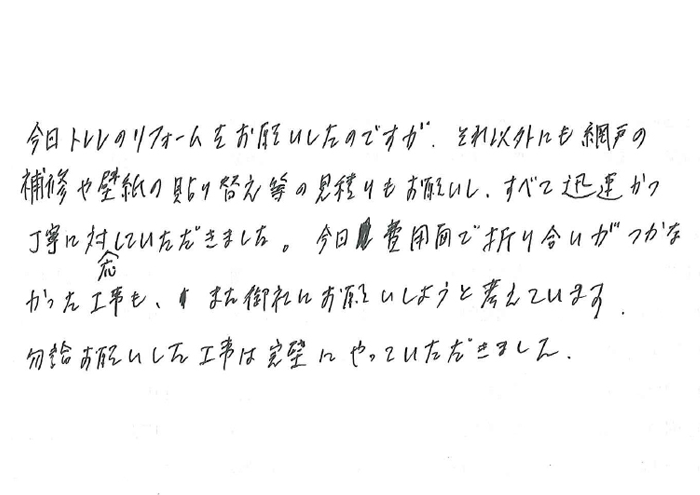 今日トイレのリフォームをお願いしたのですが、それ以外にも網戸の
補修や壁紙の貼り替え等の見積りもお願いし、すべて迅速かつ
丁寧に対応していただきました。今日費用面で折り合いがつかな
かった工事も、また御社にお願いしようと考えています。
勿論お願いした工事は完璧にやっていただきました。